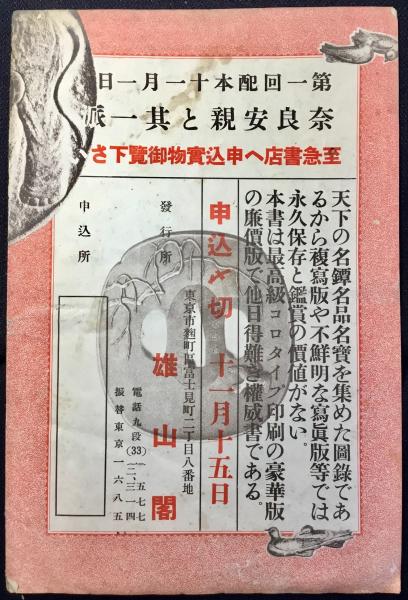 第一回配本十一月一日
奈良安親と其一派
至急書店へ申込實物御覽下さ
天下の名鐔名品名寶を集めた圖錄であ
るから複寫版や不鮮明な寫眞版等では
永久保存と鑑賞の價値がない。
本書は最高級コロタイプ印刷の豪華版
の廉價版で他日得難き權威書である。
申込〆切 十一月十五日
發行所
東京市麴町區富士見町二丁目八番地
雄山閣
電話九段(33)
振替東京一六八五
申込所